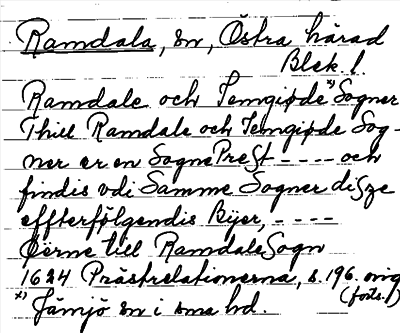 Ramdala, sn, Östra härad
Blek l.
Ramdale och Jemgiøde x) Sogner
Thill Ramdale och Jemgiøde Sog-
ner er en Sogne PreSt ---- och
findis vdi Samme Sogner diSze
effterfølgendis Bÿer, ----
Øerne till Ramdale Sogn
1624 Prästrelationerna, s. 196. orig
(forts.)
x) Jämjö sn i sma hd.